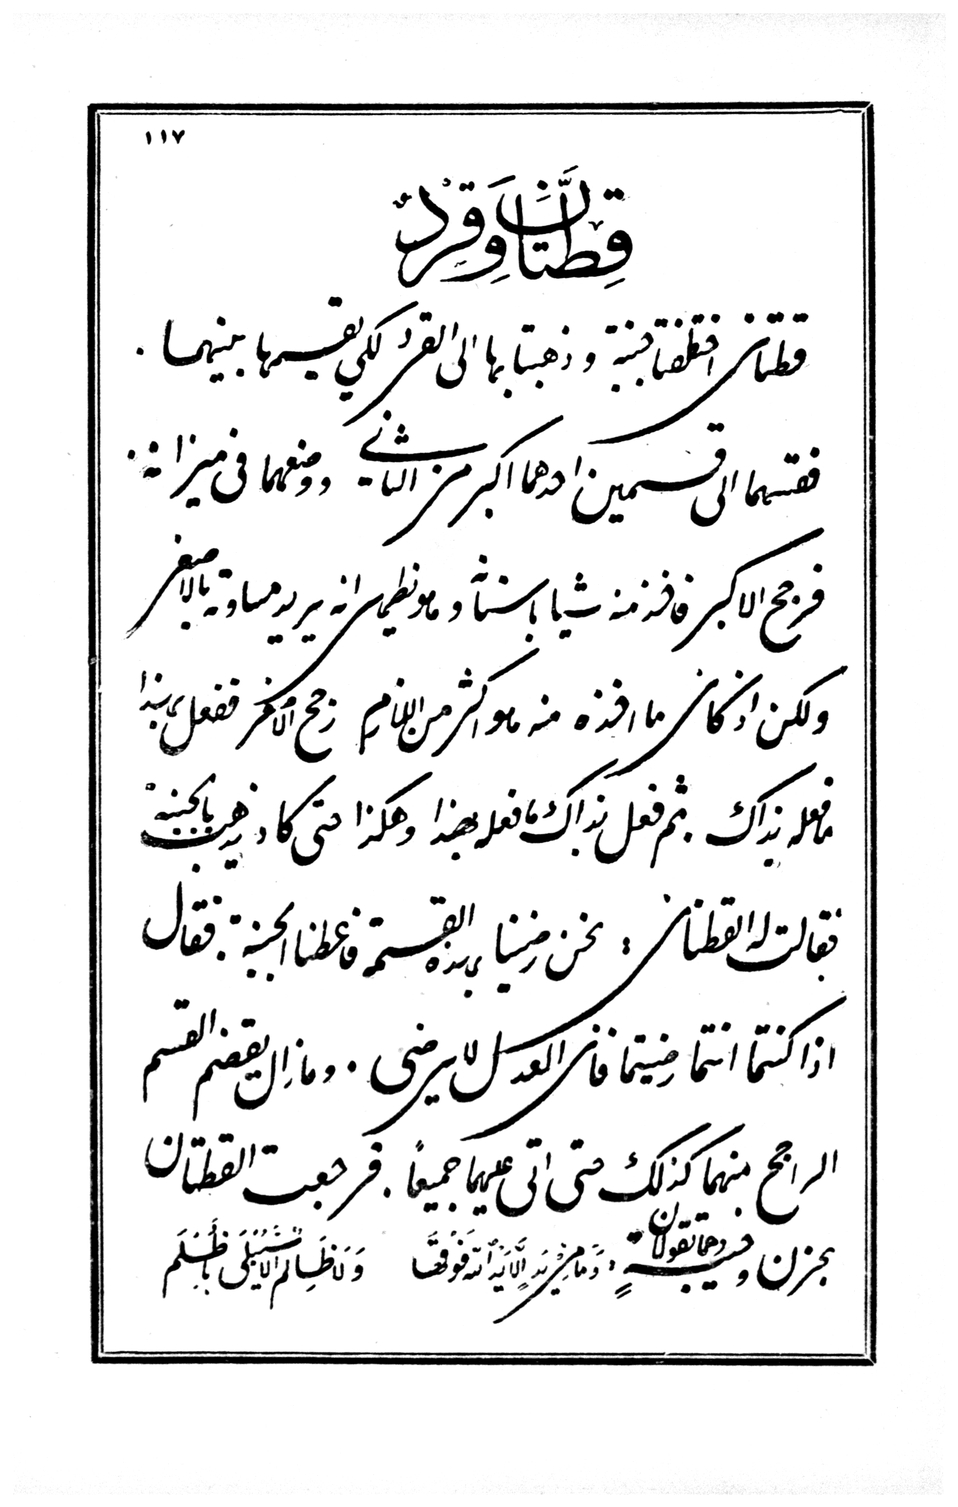 ١١٧
قِطَّتَانِ وَقِرْدٌ
قطتان اختطفتا جبنة وذهبتا بها الى القرد لكي يقسمها بينهما .
فقسمها الى قسمين احدهما اكبر من الثاني ووضعهما في ميزانه .
فرجح الاكبر فاخذ منه شيأ باسنانه وهو يظهر انه يريد مساواته بالاصغر
ولكن اذ كان ما اخذه منه هو اكثر من اللازم رجح الاصغر ففعل بهذا
ما فعله بذاك . ثم فعل بذاك ما فعله بهذا وهكذا حتى كاد يذهب بالجبنة
فقالت له القطتان : نحن رضينا بهذه القسمة فاعطنا الجبنة . فقال
اذا كنتما انتما رضيتما فان العدل لا يرضى . وما زال يقضم القسم
الراجح منهما كذلك حتى اتى عليهما جميعاً . فرجعت القطتان
بحزن وخيبةٍ وهما تقولان : وَمَا مِنْ يَدٍ إِلَّا يَدُ اللهِ فَوْقَهَا وَلَا ظَالِمٍ إِلَّا سَيُبْلَى بِأَظْلَمِ